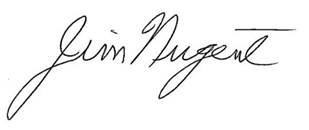 Jim Nugent